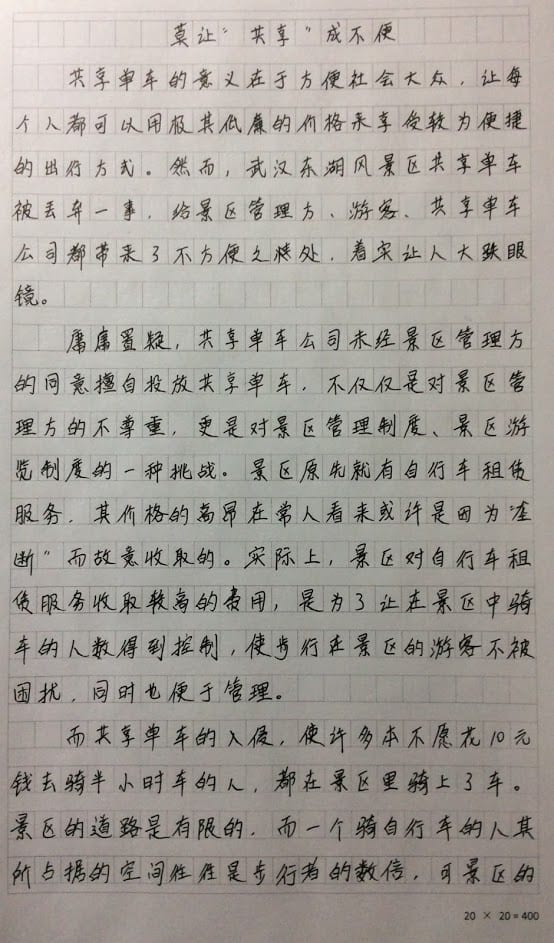 莫让“共享”成不便
共享单车的意义在于方便社会大众，让每
个人都可以用极其低廉的价格来享受较为便捷
的出行方式。然而，武汉东湖风景区共享单车
被丢弃一事，给景区管理方、游客、共享单车
公司都带来了不方便之烦处，着实让人大跌眼
镜。
庸庸置疑，共享单车公司未经景区管理方
的同意擅自投放共享单车，不仅仅是对景区管
理方的不尊重，更是对景区管理制度、景区游
览制度的一种挑战。景区原先就有自行车租赁
服务，其价格的高昂在常人看来或许是因为“垄
断”而故意收取的。实际上，景区对自行车租
赁服务收取较高的费用，是为了让在景区中骑
车的人数得到控制，使步行在景区的游客不被
困扰，同时也便于管理。
而共享单车的入侵，使许多本不愿花10元
钱去骑半小时车的人，都在景区里骑上了车。
景区的道路是有限的，而一个骑自行车的人其
所占据的空间往往是步行者的数倍，可景区的
20 × 20 = 400